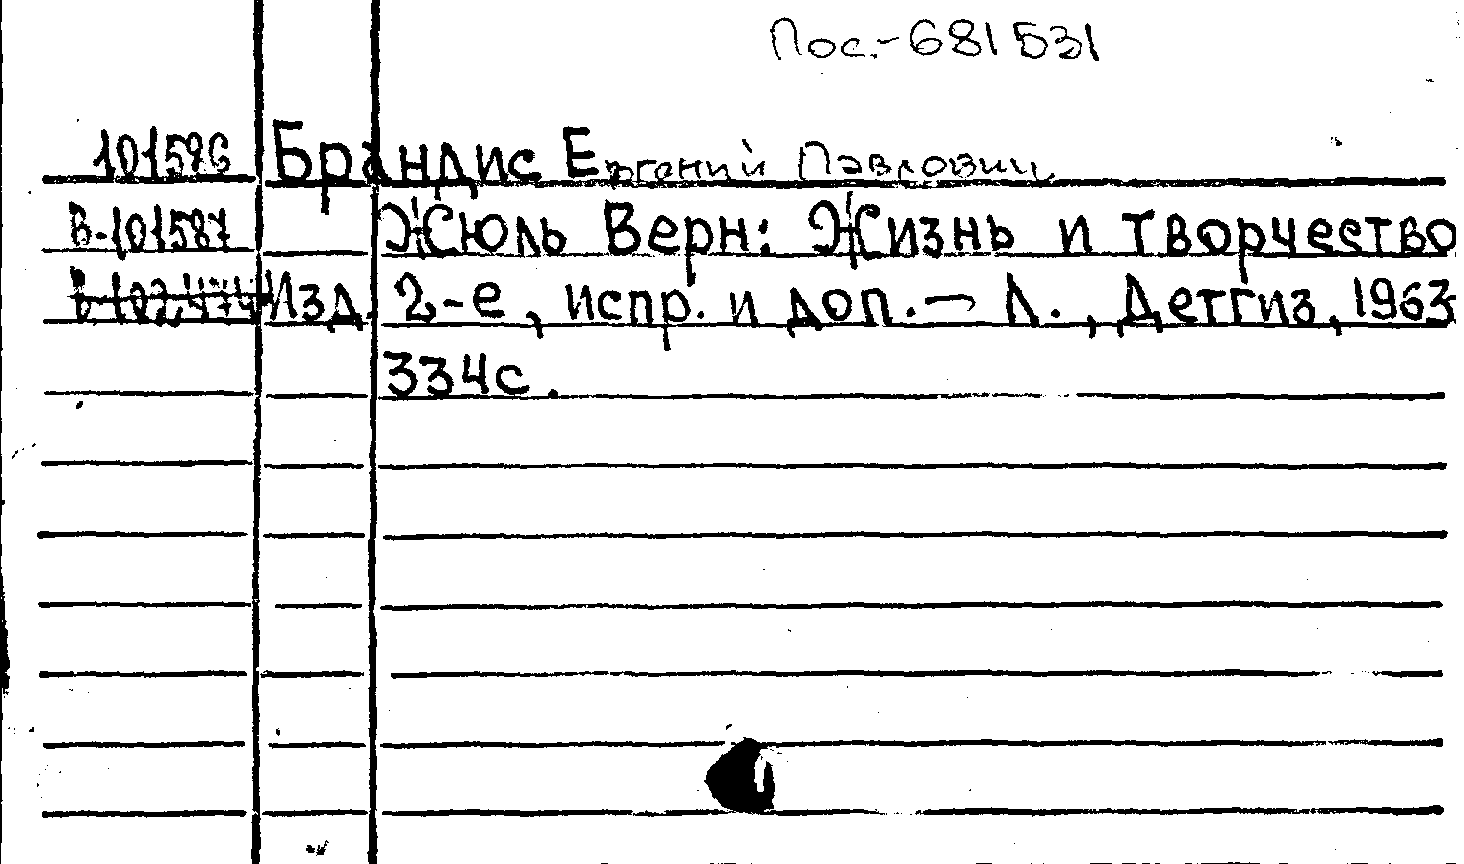 Пос.-681531
101586 Брандис Евгений Павлович
В-101587 Жюль Верн: Жизнь и творчество
В-102474 Изд. 2-е, испр. и доп. — Л., Детгиз, 1963
334с.